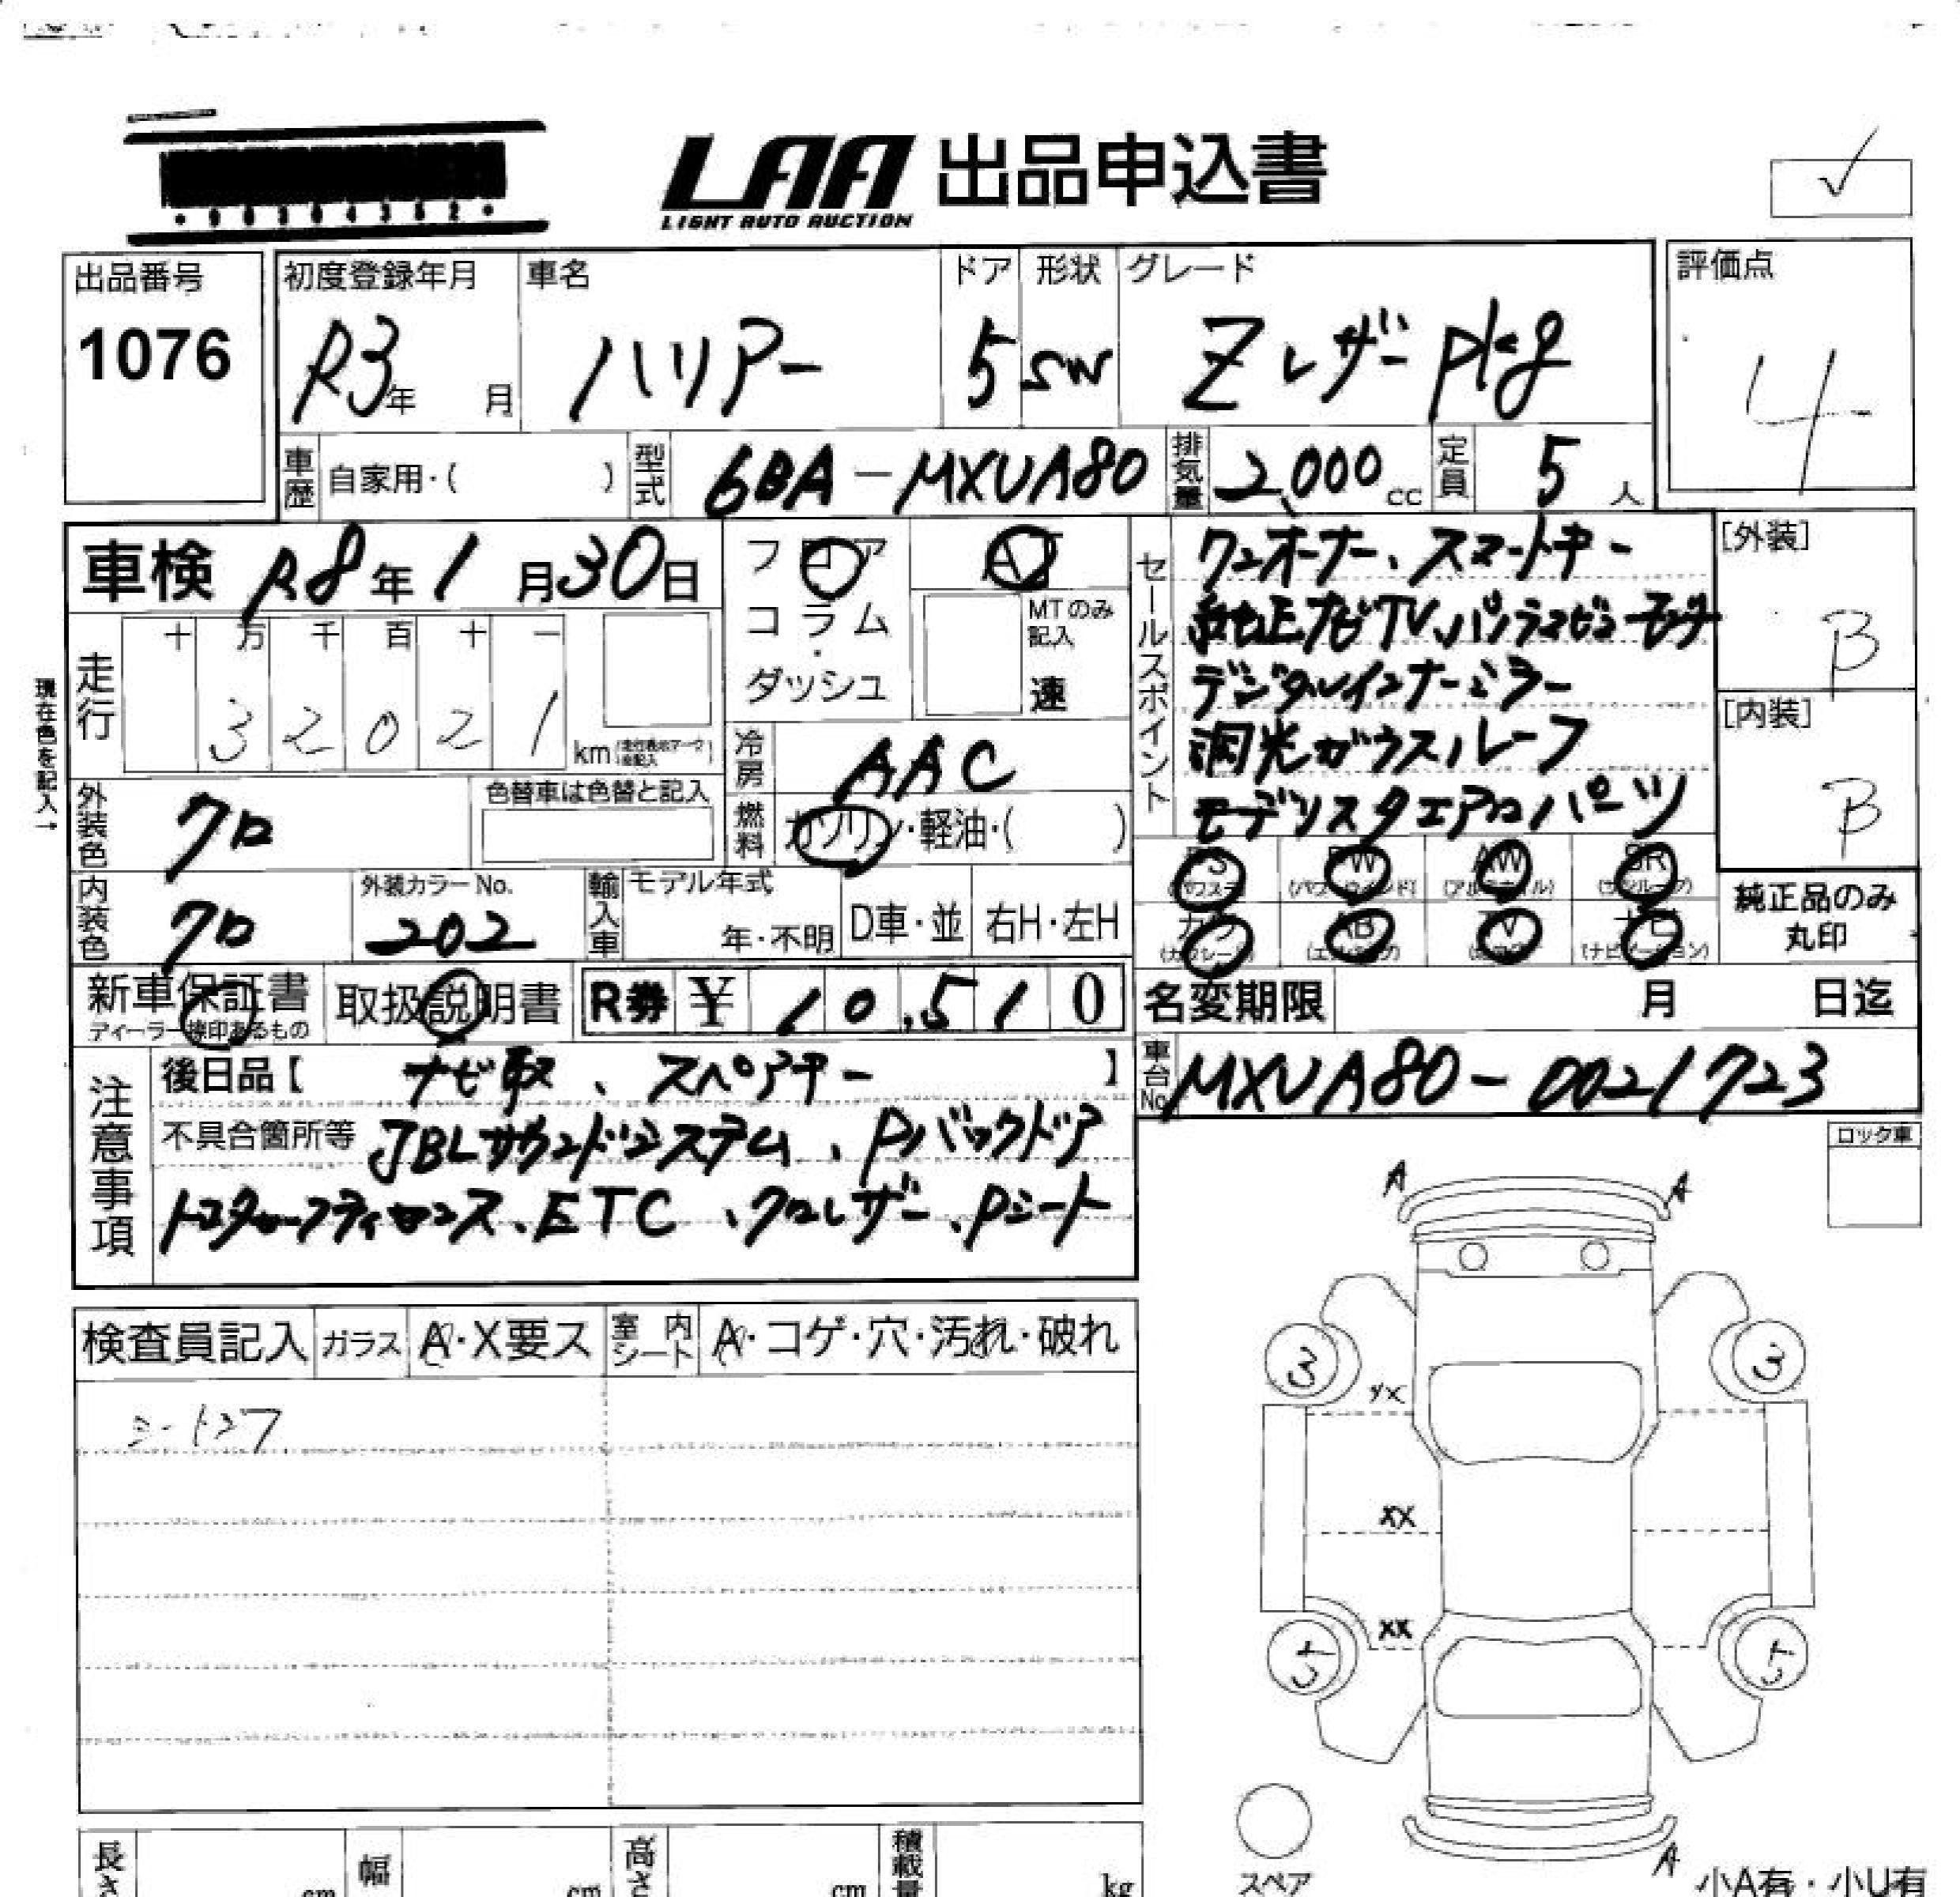 LAA 出品申込書
LIGHT AUTO AUCTION
出品番号
1076
初度登録年月
R3年 月
車名
ハリアー
ドア
5
形状
SW
グレード
Zレザーpkg
評価点
4
車歴
自家用・( )
型式
6BA-MXUA80
排気量
2,000cc
定員
5人
車検 R8年1月30日
フロア
コラム・
ダッシュ
AT
MTのみ
記入
速
走行
十 万 千 百 十 一
3 2 0 2 1 km
現在色を記入→
冷房
AAC
燃料
ガソリン・軽油・( )
外装色
クロ
色替車は色替と記入
内装色
クロ
外装カラーNo.
202
輸入車
モデル年式
年・不明
D車・並
右H・左H
セールスポイント
ワンオーナー、スマートキー
純正ナビTV、パノラマビューモニター
デジタルインナーミラー
調光ガラスルーフ
モデリスタエアロパーツ
[外装]
B
[内装]
B
PS
PW
AW
SR
カワ
AB
TV
ナビ
純正品のみ
丸印
新車保証書
取扱説明書
R券 ¥ 10,510
名変期限 月 日迄
車台No.
MXUA80-0021723
注意事項
後日品【 ナビ取、スペアキー 】
不具合箇所等 JBLサウンドシステム、Pバックドア
トヨタセーフティセンス、ETC、クロレザー、Pシート
ロック車
検査員記入
ガラス
A・X要ス
室内シート
A・コゲ・穴・汚れ・破れ
シートシワ
A A
3 3
XX
XX
A
スペア
小A有・小U有
長さ cm
幅 cm
高さ cm
積載量 kg